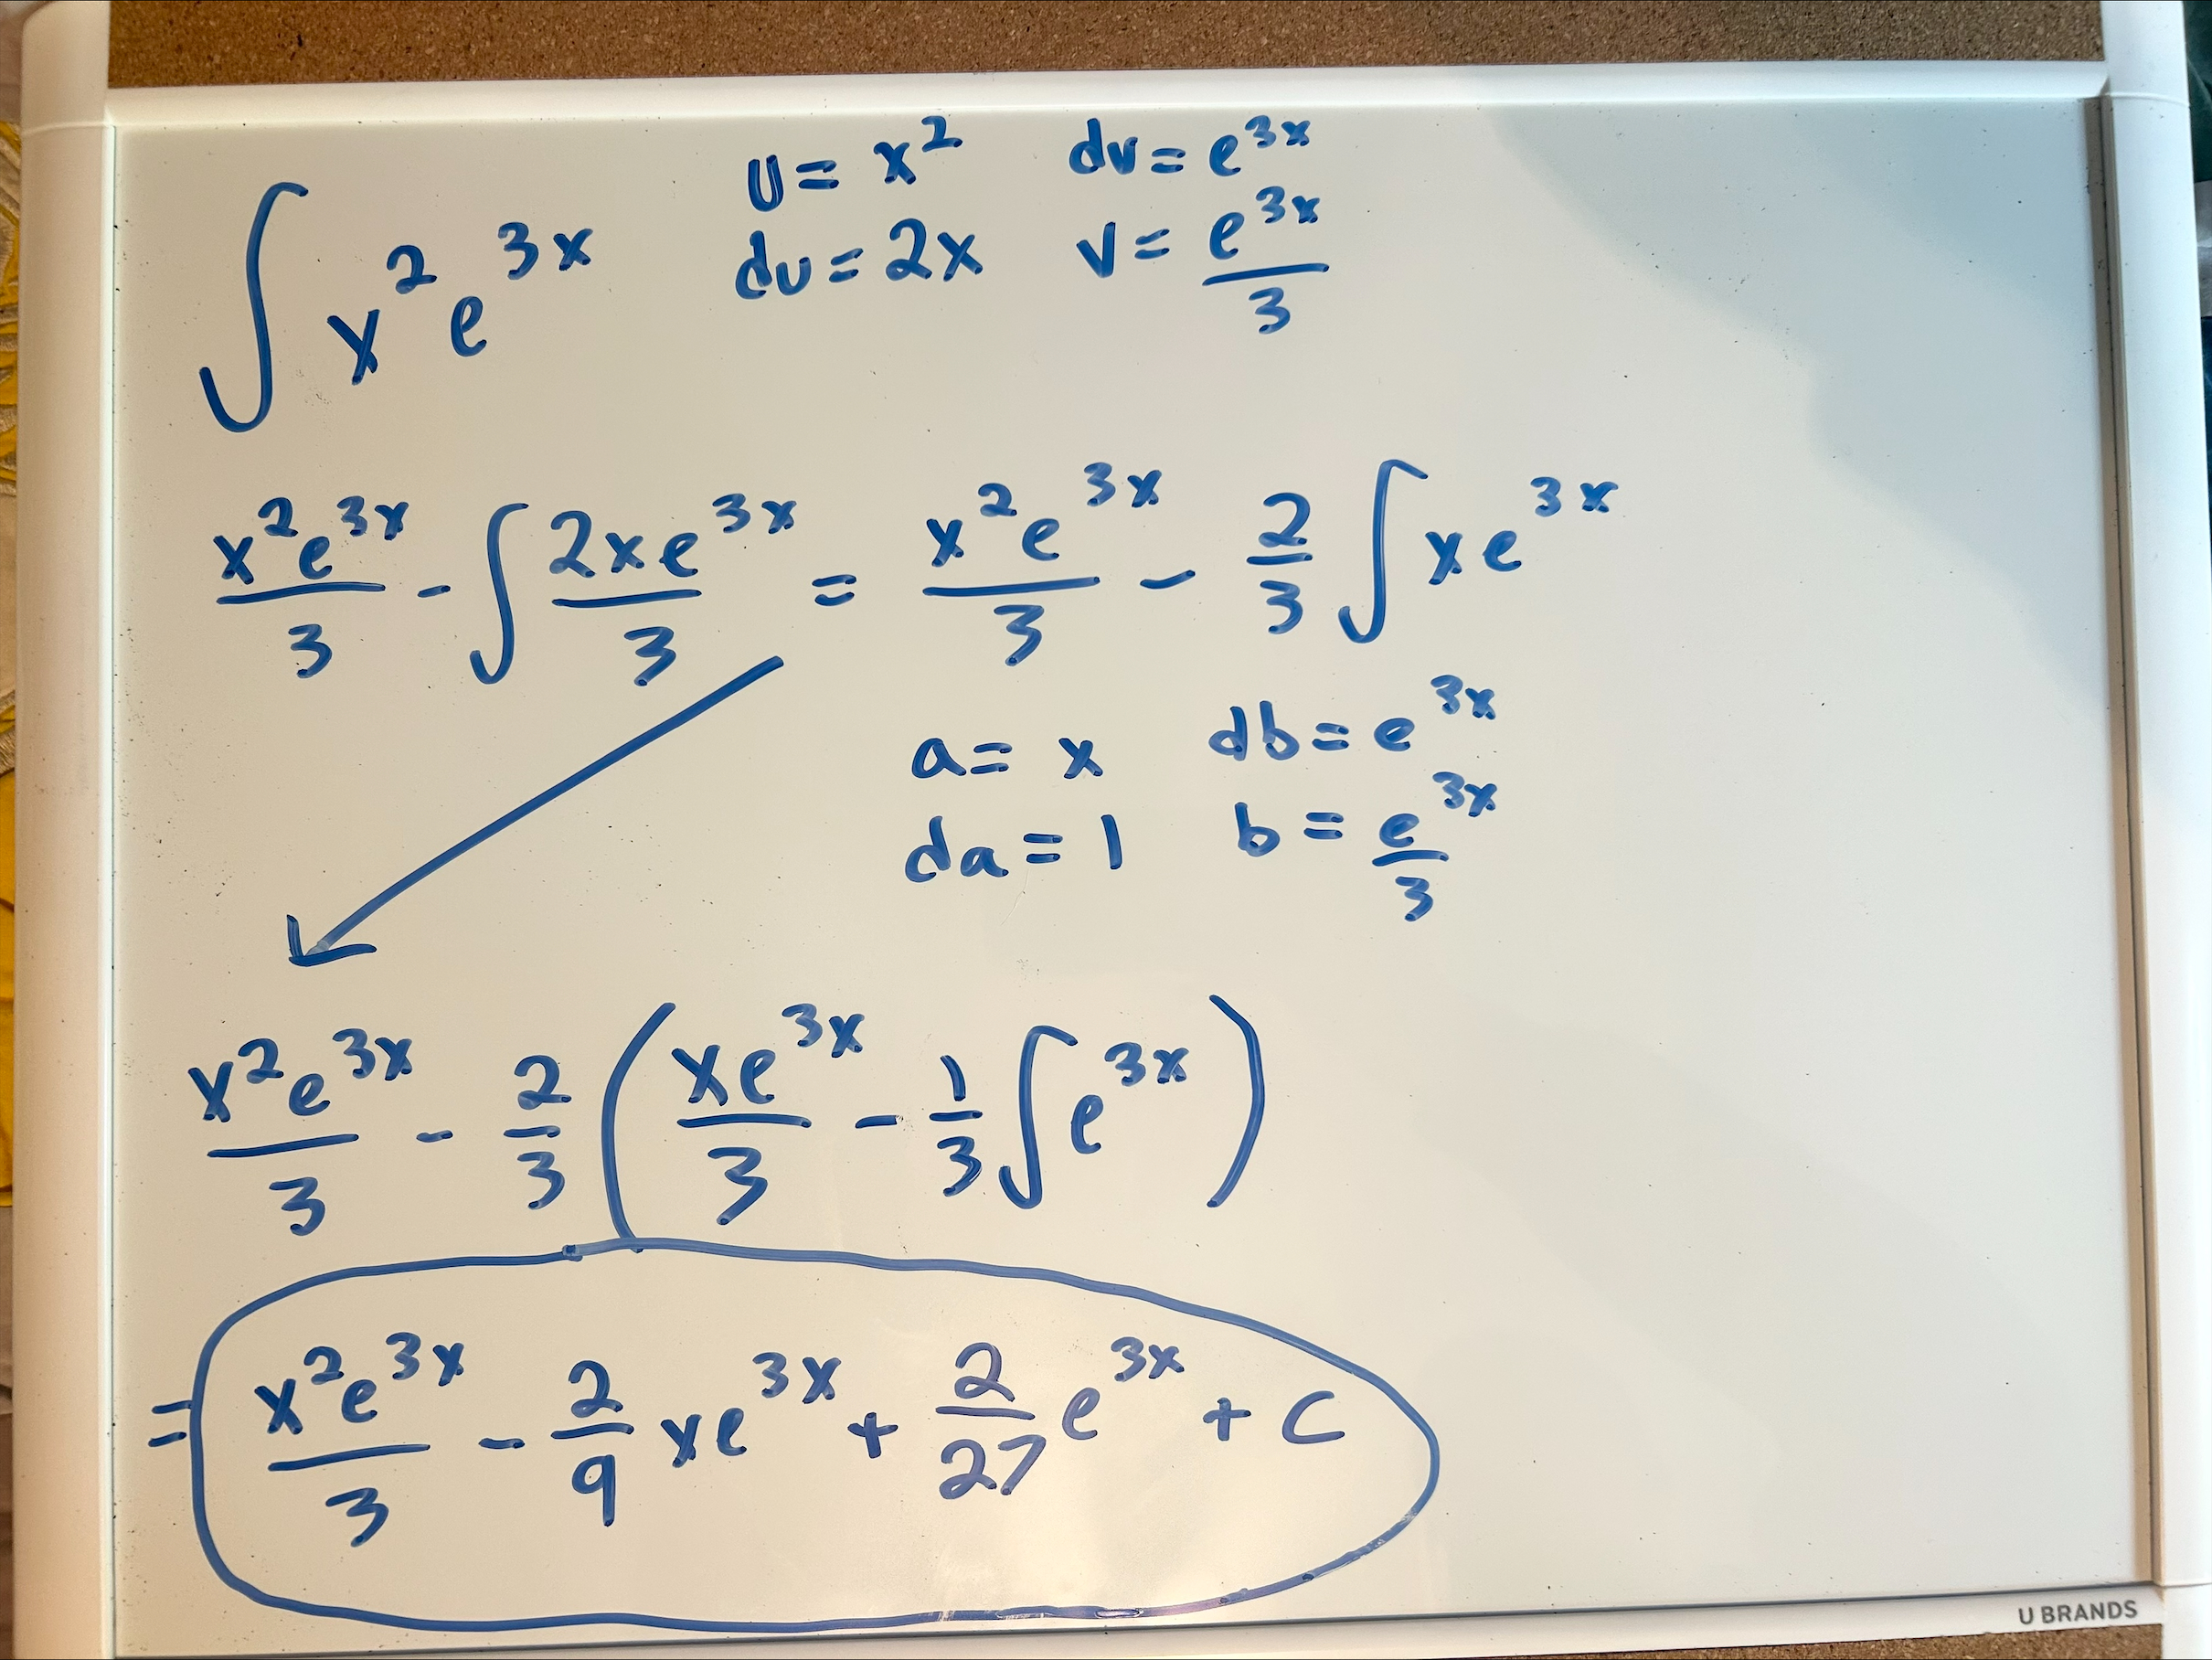 ∫ x² e^{3x}   u = x²   dv = e^{3x}
du = 2x   v = e^{3x}/3
x²e^{3x}/3 - ∫ 2xe^{3x}/3 = x²e^{3x}/3 - 2/3 ∫ xe^{3x}
a = x   db = e^{3x}
da = 1   b = e^{3x}/3
x²e^{3x}/3 - 2/3 ( xe^{3x}/3 - 1/3 ∫ e^{3x} )
= x²e^{3x}/3 - 2/9 xe^{3x} + 2/27 e^{3x} + C
U BRANDS